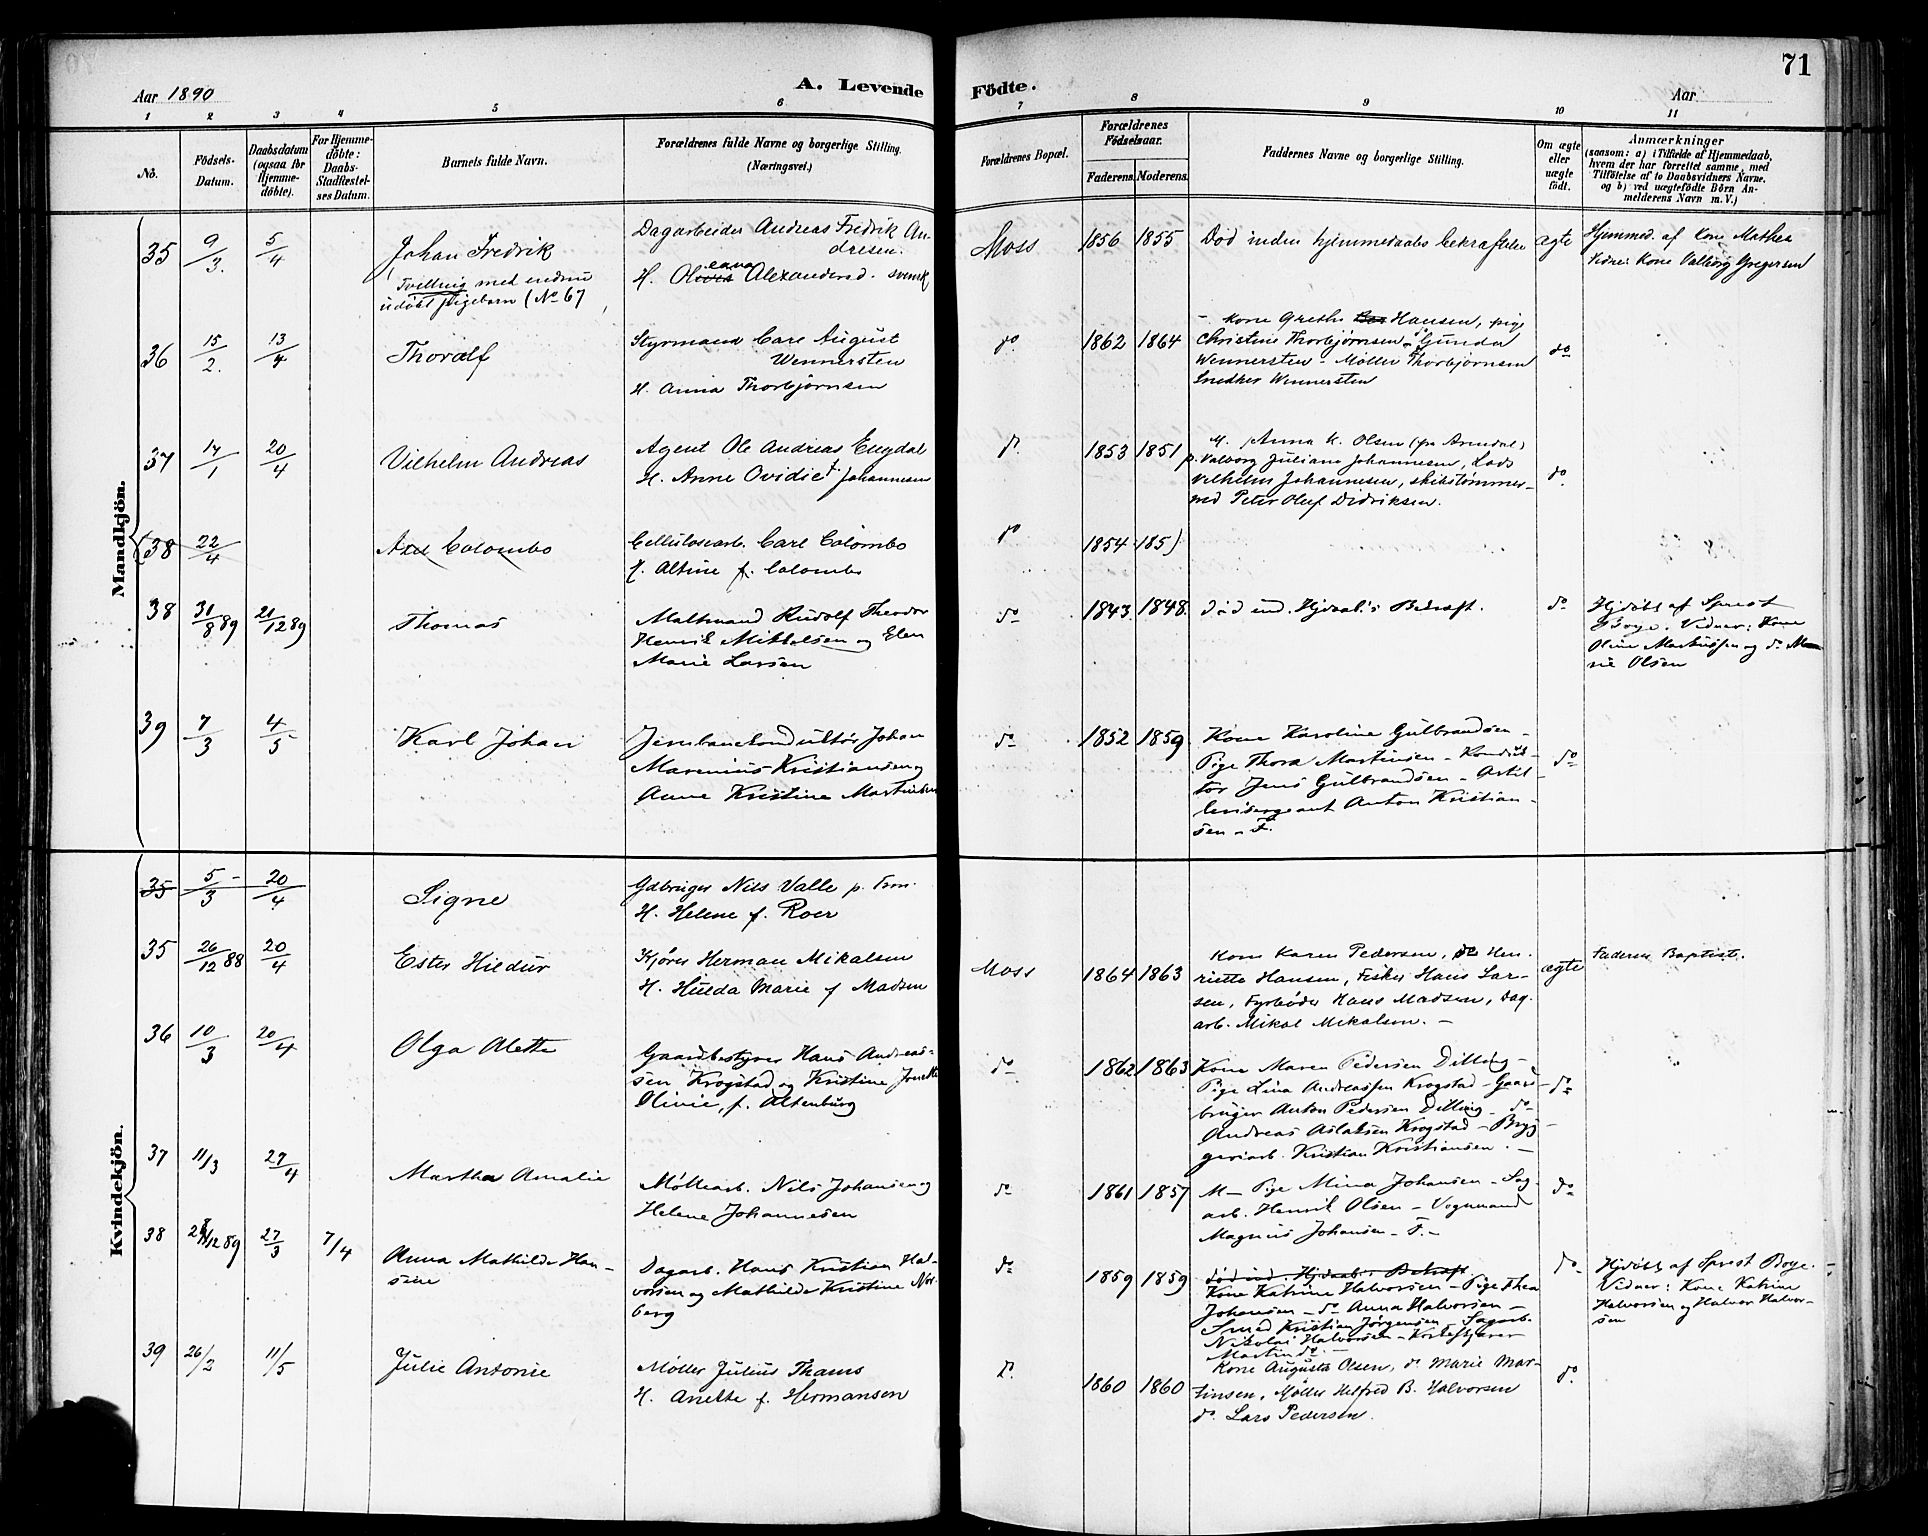 71
Aar 1890
A. Levende Födte.
Aar
1 2 3 4 5 6 7 8 9 10 11
No.
Födsels-
Datum.
Daabsdatum
(ogsaa for
Hjemme-
döbte).
For Hjemme-
döbte:
Daabs-
Stadfæstel-
ses Datum.
Barnets fulde Navn.
Forældrenes fulde Navne og borgerlige Stilling.
(Næringsvei.)
Forældrenes Bopæl.
Forældrenes
Födselsaar.
Faderens.
Moderens.
Faddernes Navne og borgerlige Stilling.
Om ægte
eller
uægte
födt.
Anmærkninger
(saasom: a) i Tilfælde af Hjemmedaab,
hvem der har forrettet samme, med
Tilföielse af to Daabsvidners Navne,
og b) ved uægtefödte Börn An-
melderens Navn m. V.)
Mandkjön.
35 9/3. 5/4
Johan Fredrik
Tvilling med endnu
udøbt Pigebarn (No 67
Dagarbeider Andreas Fredrik An-
dresen.
H. Oleana Alexandersd. svensk
Moss 1856 1855
Død inden hjemmedaabs bekræftelse
ægte
Hjemmed. af Kone Mathea
Vidne: Kone Valborg Gregersen
36 15/2. 13/4
Thoralf
Styrmand Carl August
Wennersten
H. Anna Thorbjørnsen
do 1862 1864
- Kone Grethe Hansen, pige
Christine Thorbjørnsen - do Gunda
Wennersten - Møller Thorbjørnsen
Snedker Wennersten
do
37 14/1 20/4
Vilhelm Andreas
Agent Ole Andreas Engdal
H. Anne Ovidie f. Johannesen
do 1853 1851
M. Anna K. Olsen (fra Arendal)
p. Valborg Juliane Johannesen, Lods
Vilhelm Johannesen, skibstømmer-
md Peter Oluf Didriksen.
do
38 22/4
Axel Colombo
Cellulosearb. Carl Colombo
H. Altine f. Colombo
do 1854 185
38 31/8 89 21/12 89
Thomas
Maltmand Rudolf Theodor
Henrik Mikkelsen og Elen
Marie Larsen
do 1843 1848
død ind. Hjdaab.s Bekræft.
do
Hjdøbt af Sprest
Boye. Vidner: Kone
Oline Markussen og do Ma-
rie Olsen
39 7/3 4/5
Karl Johan
Jernbanekonduktør Johan
Marenius Kristiansen og
Anne Kristine Martinsen
do 1852 1859
Kone Karoline Gulbrandsen -
Pige Thora Martinsen - Konduk-
tør Jens Gulbrandsen - Artil-
lerisergeant Anton Kristian-
sen - F.
do
Kvindekjön.
35 5/3 20/4
Signe
Gdbruger Nils Valle p. Tron.
H. Helene f. Roer
35 26/12 88 20/4
Ester Hildur
Kjører Herman Mikalsen
H. Hulda Marie f. Madsen
Moss 1864 1863
Kone Karen Pedersen, do Hen-
riette Hansen, Fisker Hans Lar-
sen, Fyrbøder Hans Madsen, Dag-
arb. Mikal Mikalsen. -
ægte
Faderen Baptist.
36 10/3 20/4
Olga Alette
Gaardbestyrer Hans Andreas-
sen Krogstad og Kristine
Olivie, f. Altenburg
do 1862 1863
Kone Maren Pedersen Dilling -
Pige Lina Andreassen Krogstad - Gaard-
bruger Anton Pedersen Dilling - do
Andreas Aslaksen Krogstad - Bryg-
geriarb. Kristian Kristiansen. -
do
37 11/3 27/4
Martha Amalie
Møllearb. Nils Johansen og
Helene Johannesen
do 1861 1857
M - Pige Mina Johansen - Sag-
arb. Henrik Olsen - Vognmand
Magnus Johansen - F. -
do
38 28/12 89 27/3 7/4
Anna Mathilde Han-
sine
Dagarb. Hans Kristian Hal-
vorsen og Mathilde Kristine
berg
do 1859 1859
død ind. Hjdaab.s Bekræft
Kone Katrine Halvorsen - Pige Thea
Johansen - do Anna Halvorsen -
Smed Kristian Jörgensen - Sagarb.
Nikolai Halvorsen -
Martin do. -
do
Hjdøbt af Sprest Boye.
Vidner: Kone Katrine
Halvorsen og Halvor Halvor-
sen
39 26/2 11/5
Julie Antonie
Møller Julius Thams
H. Anette f. Hermansen
do 1860 1860
Kone Augusta Olsen, do Marie Mar-
tinsen, Møller Helfred B. Halvorsen
do. Lars Pedersen.
do